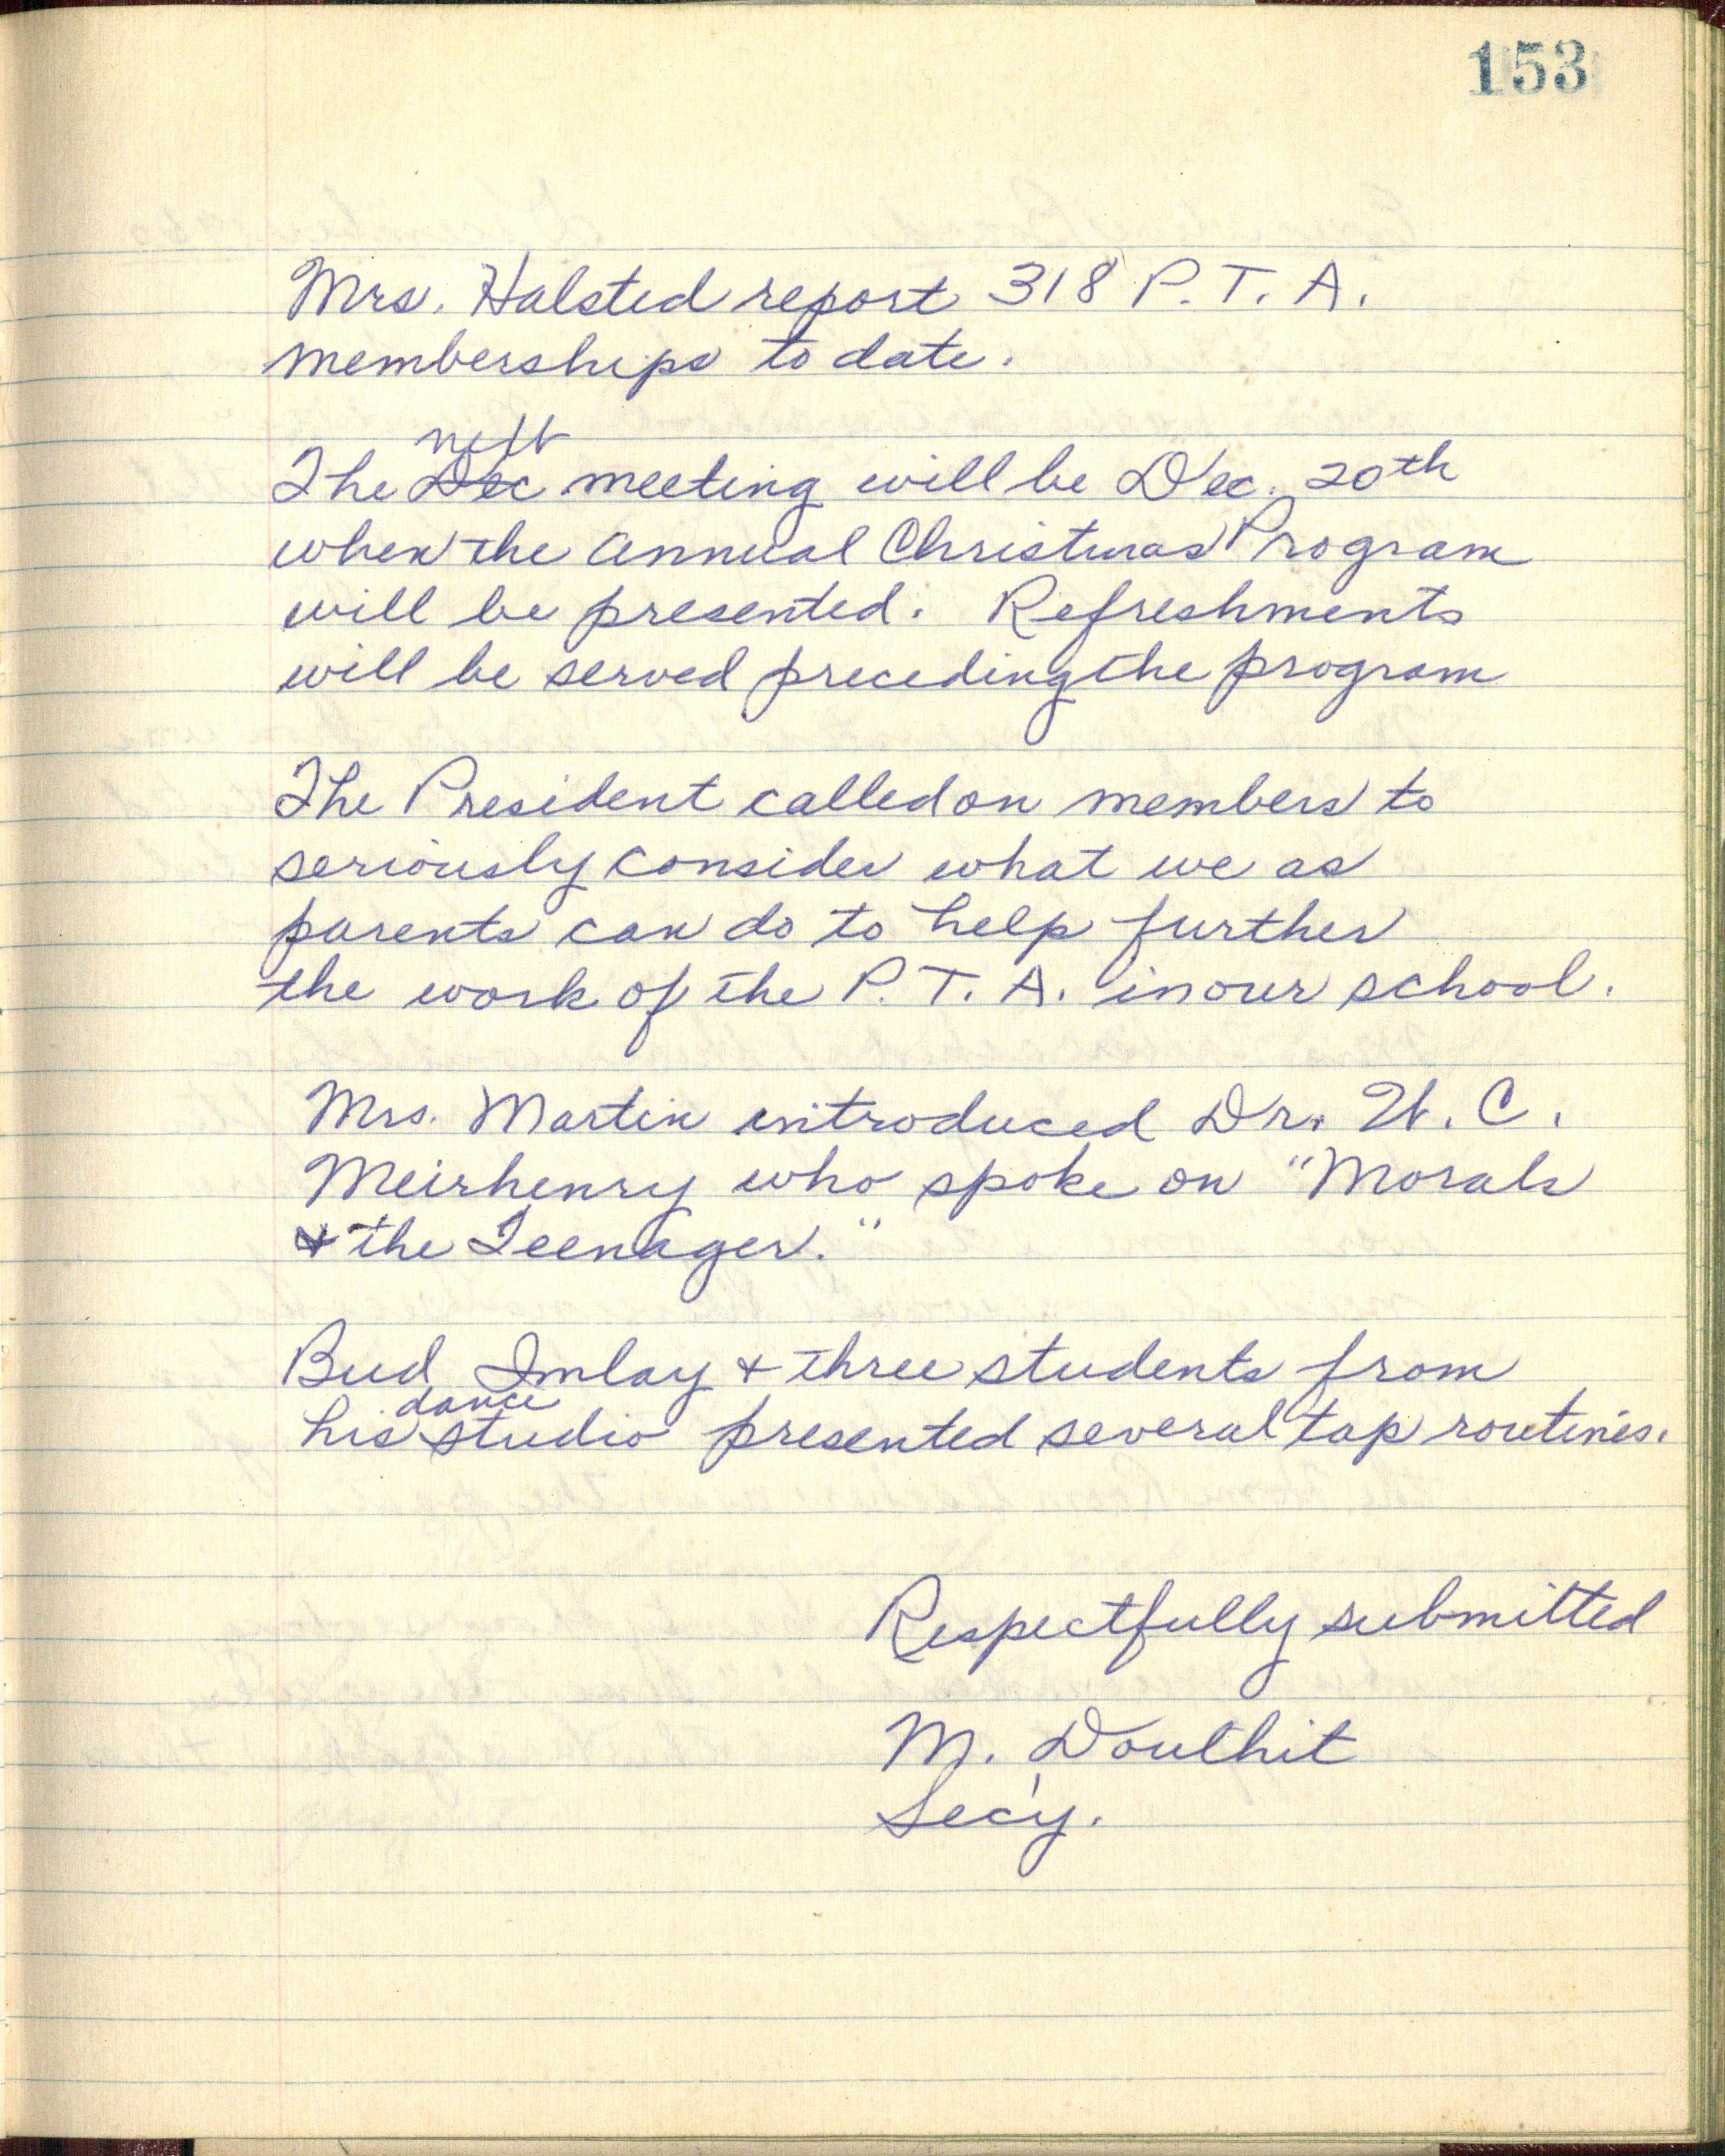 153
Mrs. Halsted report 318 P. T. A.
memberships to date.
next
The Dec meeting will be Dec. 20th
when the Annual Christmas Program
will be presented. Refreshments
will be served preceding the program
The President called on members to
seriously consider what we as
parents can do to help further
the work of the P. T. A. in our school.
Mrs. Martin introduced Dr. W. C.
Meirhenry who spoke on "Morals
& the Teenager."
Bud Imlay & three students from
dance
his studio presented several tap routines.
Respectfully submitted
M. Douthit
Sec'y.